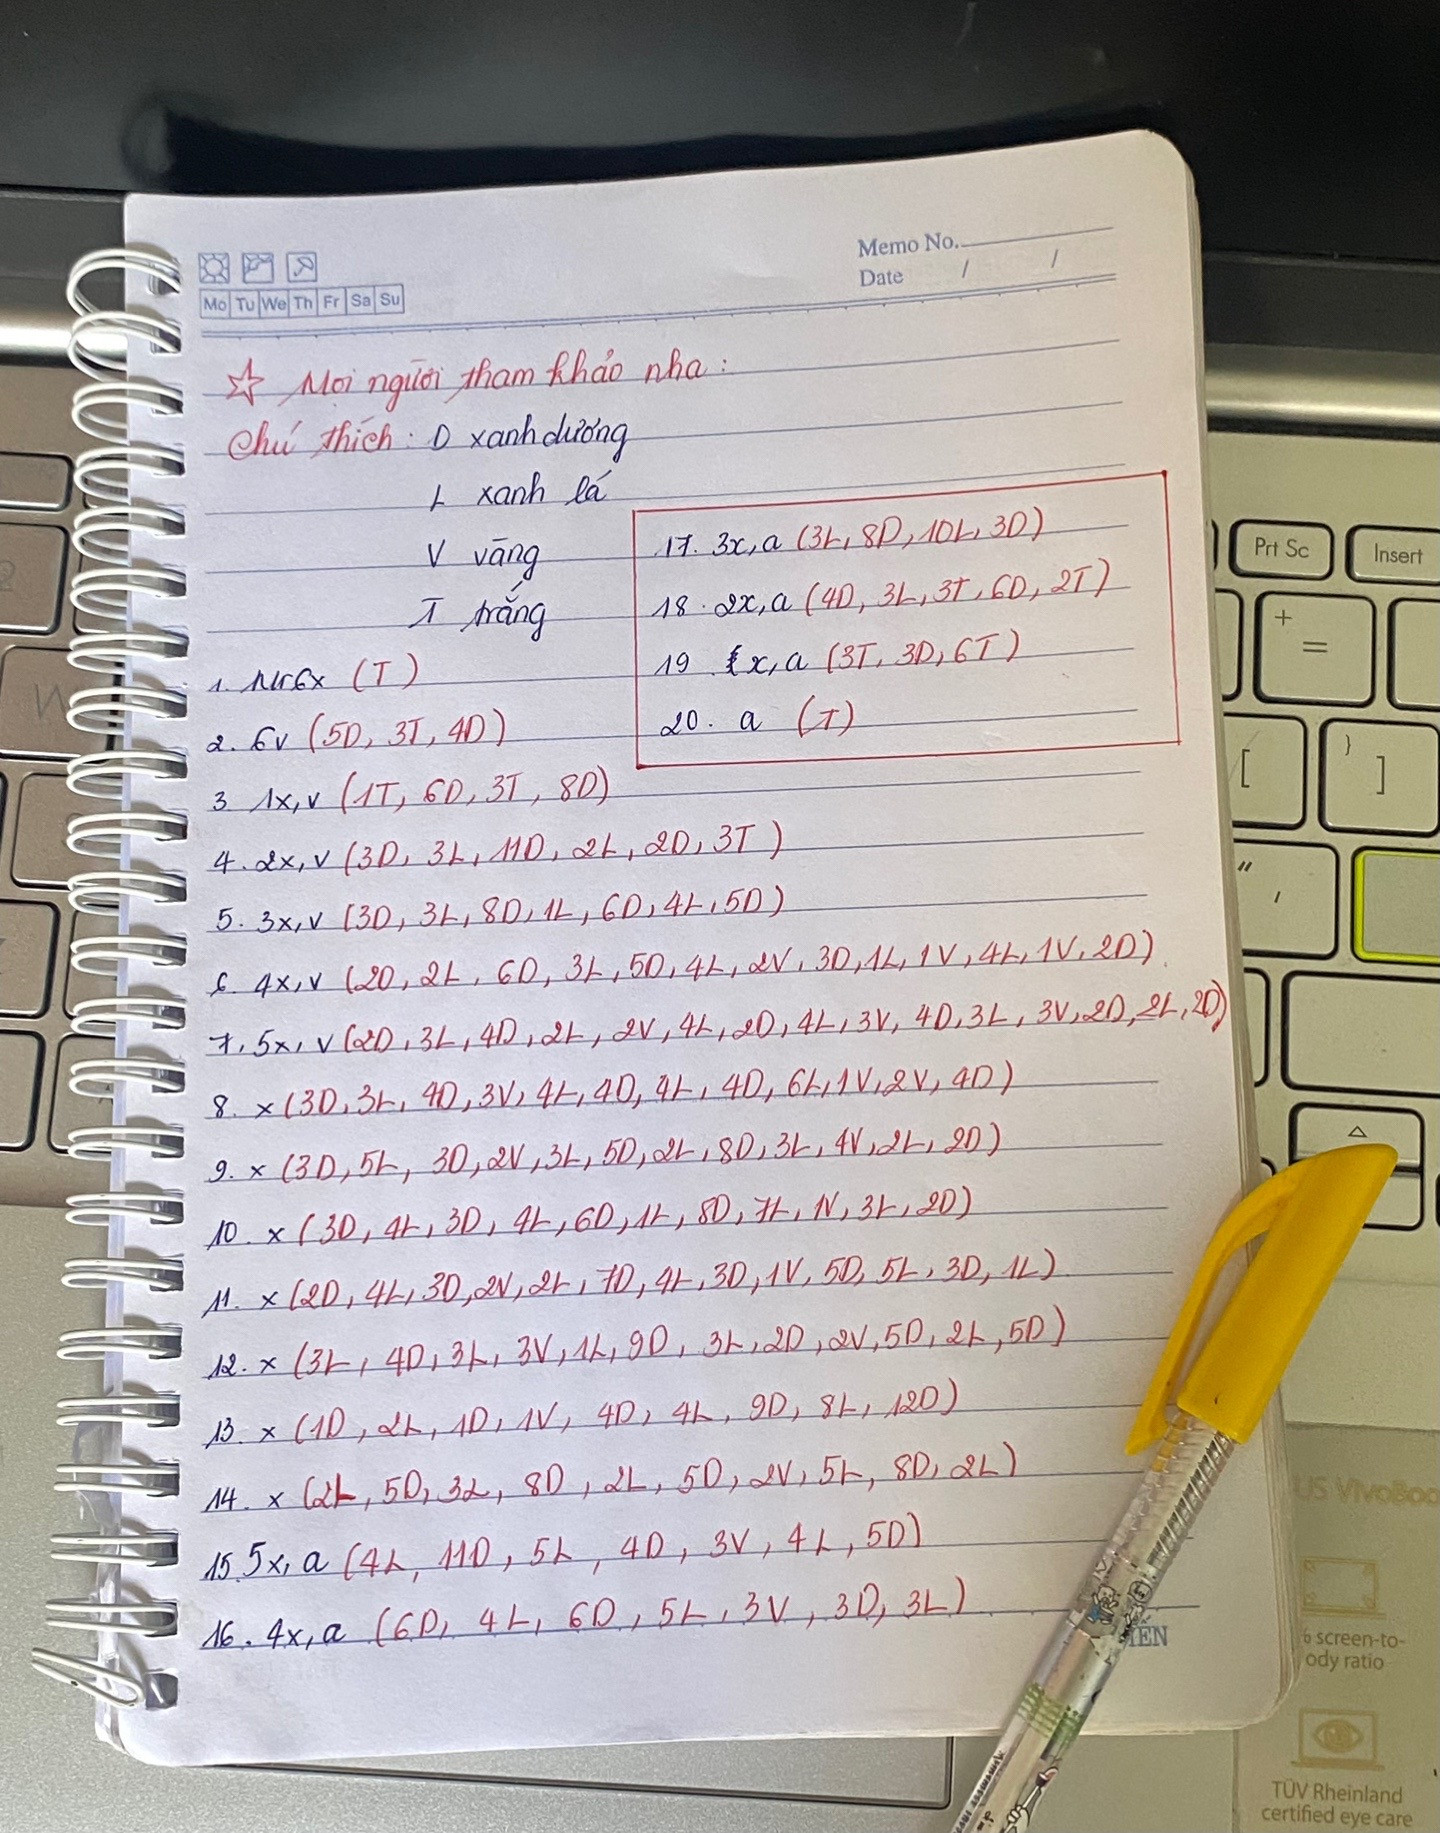 Memo No.
Date / /
Mo Tu We Th Fr Sa Su
☆ Mọi người tham khảo nha :
Chú thích : D xanh dương
L xanh lá
V vàng
T trắng
1. MR6x (T)
2. 6v (5D, 3T, 4D)
3 1x, v (1T, 6D, 3T, 8D)
4. 2x, v (3D, 3L, 11D, 2L, 2D, 3T)
5. 3x, v (3D, 3L, 8D, 1L, 6D, 4L, 5D)
6. 4x, v (2D, 2L, 6D, 3L, 5D, 4L, 2V, 3D, 1L, 1V, 4L, 1V, 2D)
7. 5x, v (2D, 3L, 4D, 2L, 2V, 4L, 2D, 4L, 3V, 4D, 3L, 3V, 2D, 2L, 2D)
8. x (3D, 3L, 4D, 3V, 4L, 4D, 4L, 4D, 6L, 1V, 2V, 4D)
9. x (3D, 5L, 3D, 2V, 3L, 5D, 2L, 8D, 3L, 4V, 2L, 2D)
10. x (3D, 4L, 3D, 4L, 6D, 1L, 8D, 7L, 1V, 3L, 2D)
11. x (2D, 4L, 3D, 2V, 2L, 7D, 4L, 3D, 1V, 5D, 5L, 3D, 1L)
12. x (3L, 4D, 3L, 3V, 1L, 9D, 3L, 2D, 2V, 5D, 2L, 5D)
13. x (1D, 2L, 1D, 1V, 4D, 4L, 9D, 8L, 12D)
14. x (2L, 5D, 3L, 8D, 2L, 5D, 2V, 5L, 8D, 2L)
15. 5x, a (4L, 11D, 5L, 4D, 3V, 4L, 5D)
16. 4x, a (6D, 4L, 6D, 5L, 3V, 3D, 3L)
17. 3x, a (3L, 8D, 10L, 3D)
18. 2x, a (4D, 3L, 3T, 6D, 2T)
19 x, a (3T, 3D, 6T)
20. a (T)
Prt Sc
Insert
+
=
[
}
]
"
'
US VivoBoo
% screen-to-
ody ratio
TÜV Rheinland
certified eye care